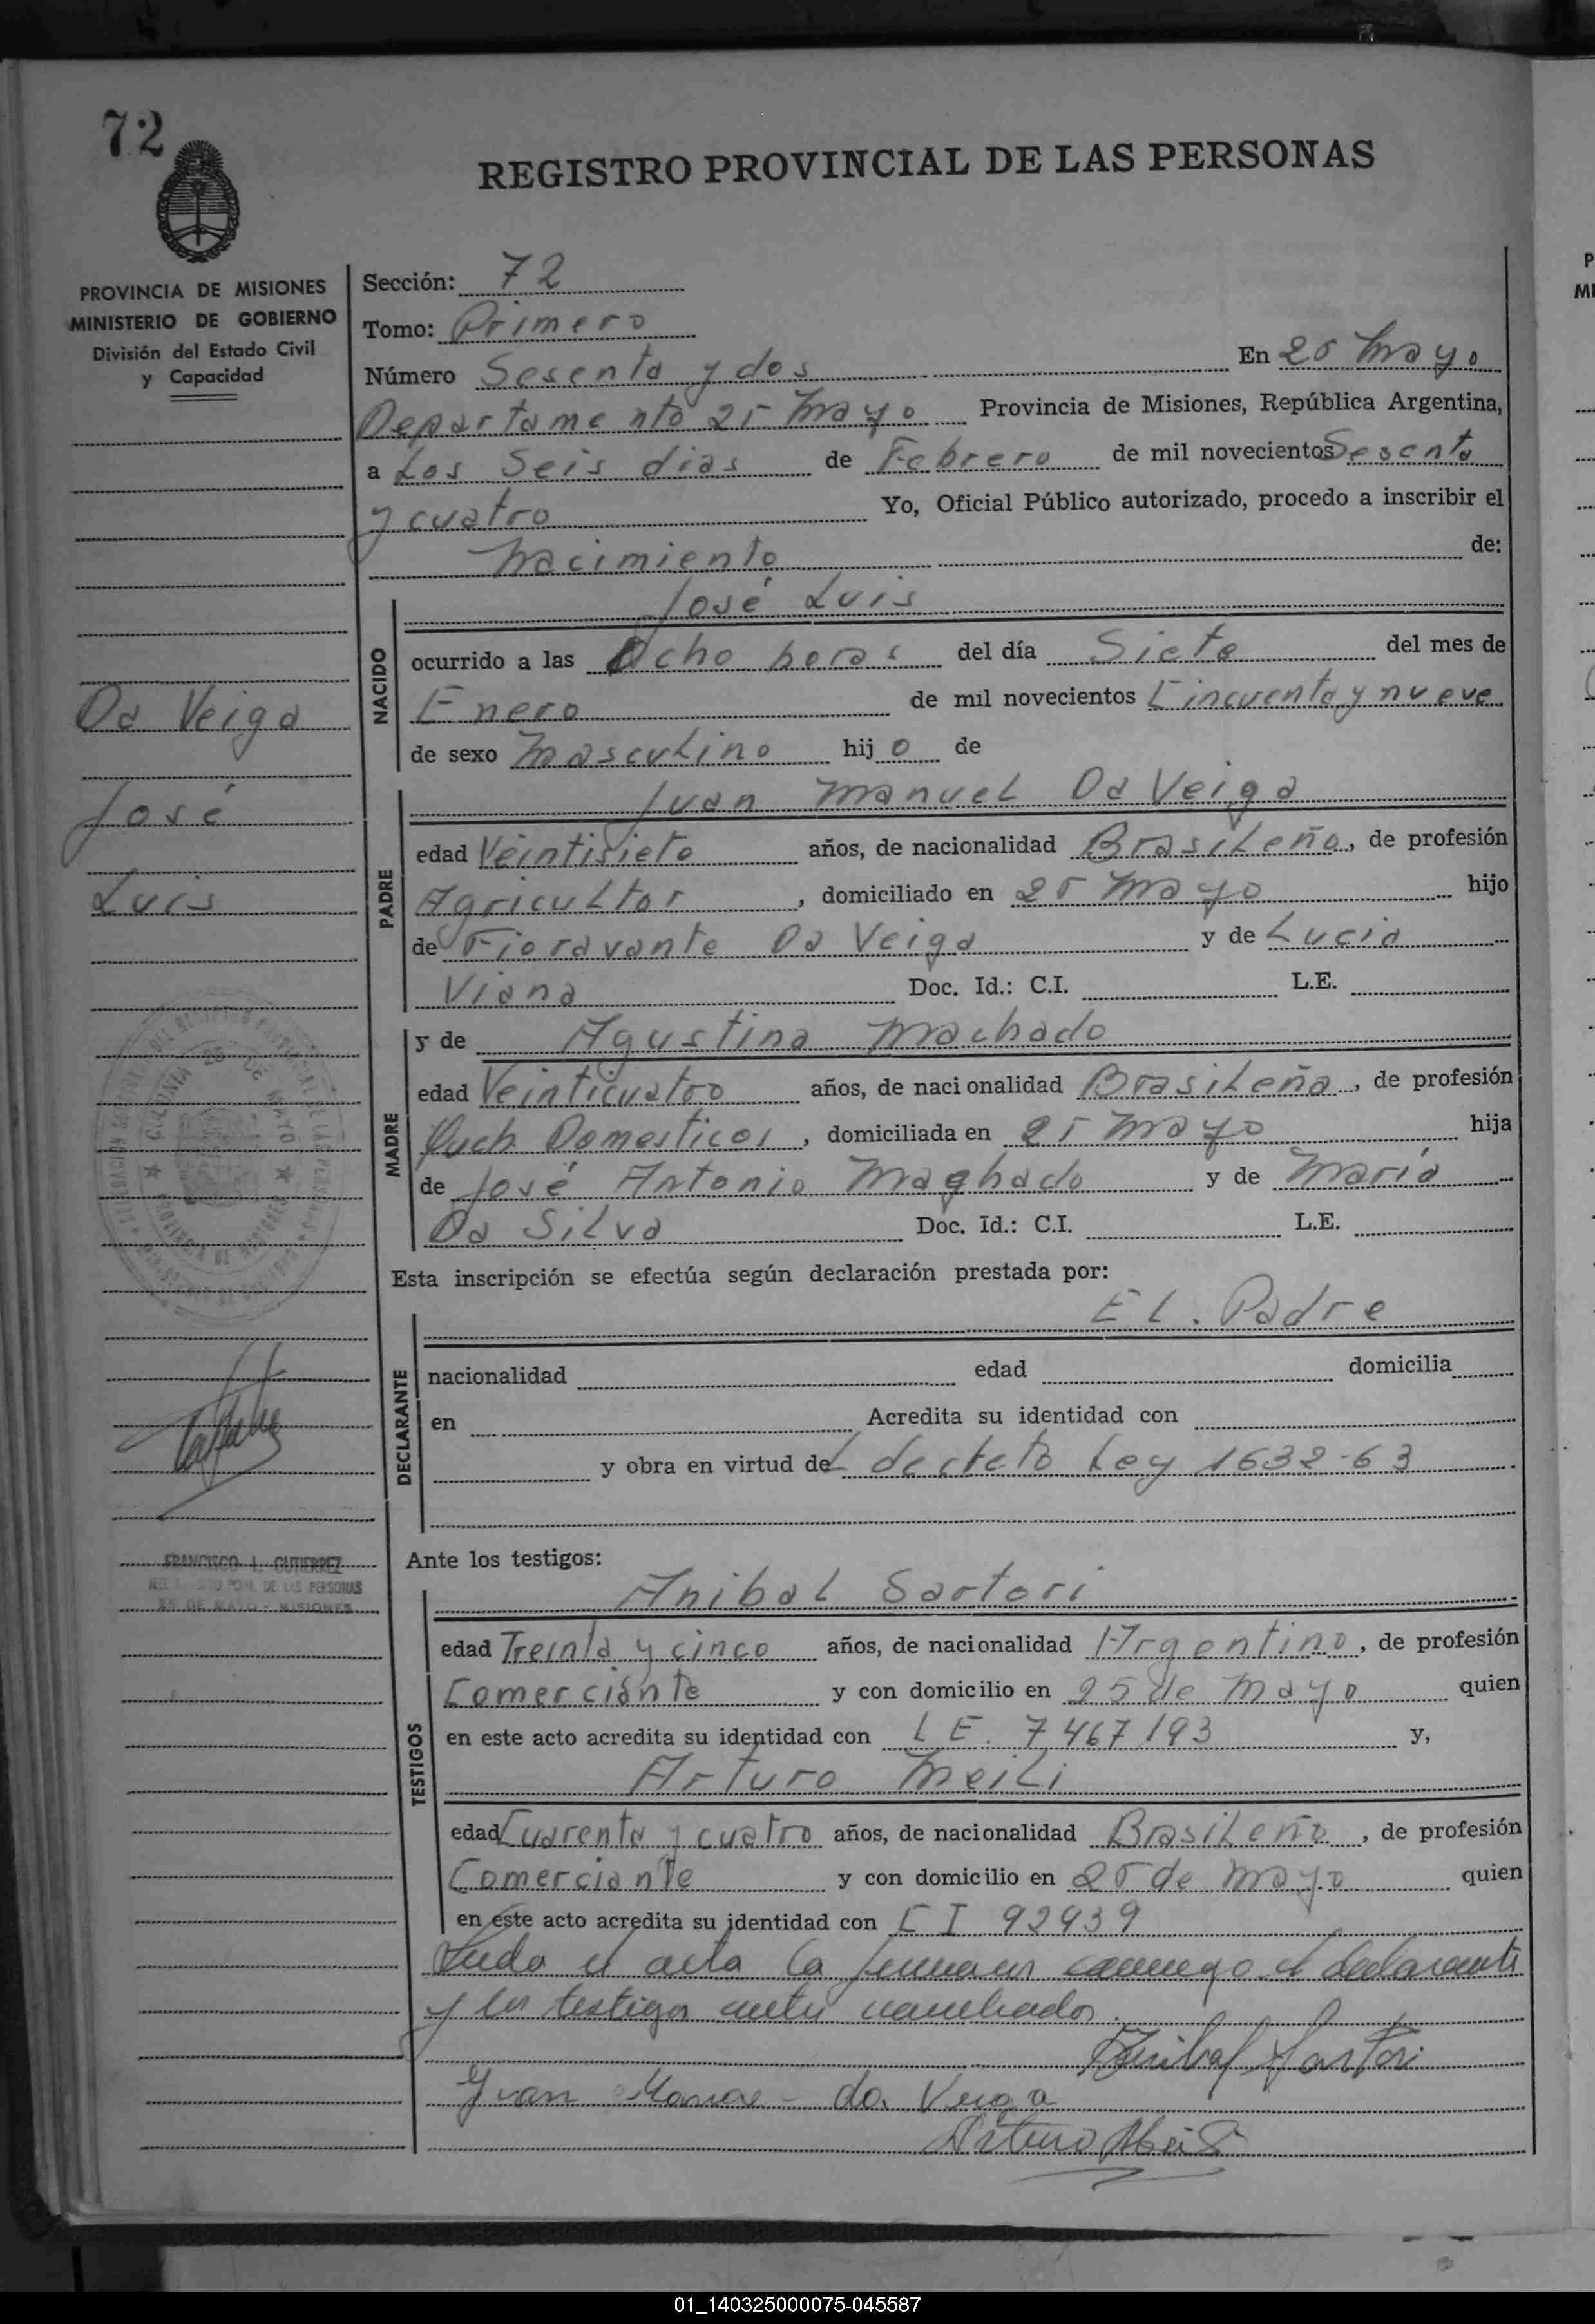 72
REGISTRO PROVINCIAL DE LAS PERSONAS
PROVINCIA DE MISIONES
MINISTERIO DE GOBIERNO
División del Estado Civil
y Capacidad
Sección: 72
Tomo: Primero
Número Sesenta y dos En 25 Mayo
Departamento 25 Mayo Provincia de Misiones, República Argentina,
a Los Seis dias de Febrero de mil novecientos Sesenta
y cuatro Yo, Oficial Público autorizado, procedo a inscribir el
Nacimiento de:
José Luis
NACIDO
ocurrido a las Ocho horas del día Siete del mes de
Enero de mil novecientos Cincuenta y nueve
de sexo Masculino hijo de
Da Veiga
José
Luis
Juan Manuel Da Veiga
PADRE
edad Veintisiete años, de nacionalidad Brasileño, de profesión
Agricultor, domiciliado en 25 Mayo hijo
de Fioravante Da Veiga y de Lucia
Viana Doc. Id.: C.I. L.E.
y de Agustina Machado
MADRE
edad Veinticuatro años, de nacionalidad Brasileña, de profesión
Domesticos, domiciliada en 25 Mayo hija
de José Antonio Maghado y de María
Da Silva Doc. Id.: C.I. L.E.
COLONIA 25 DE MAYO
Esta inscripción se efectúa según declaración prestada por:
EL. Padre
DECLARANTE
nacionalidad edad domicilia
en Acredita su identidad con
y obra en virtud deL decreto Ley 1632-63
FRANCISCO I. GUTIERREZ
DE LAS PERSONAS
25 DE MAYO - MISIONES
Ante los testigos:
Anibal Sartori
TESTIGOS
edad Treinta y cinco años, de nacionalidad Argentino, de profesión
Comerciante y con domicilio en 25 de Mayo quien
en este acto acredita su identidad con LE. 7467193 y,
Arturo Meili
edad Cuarenta y cuatro años, de nacionalidad Brasileño, de profesión
Comerciante y con domicilio en 25 de Mayo quien
en este acto acredita su identidad con CI 92939
Leida el acta la firman conmigo el declarante
y los testigos antes nombrados.
Anibal Sartori
da Veiga
Arturo Meili
01_140325000075-045587